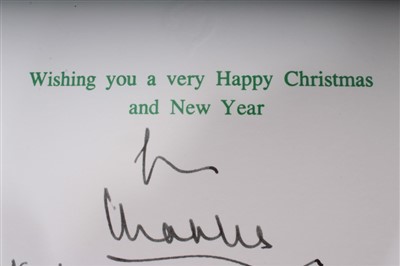 Wishing you a very Happy Christmas
and New Year
from
Charles